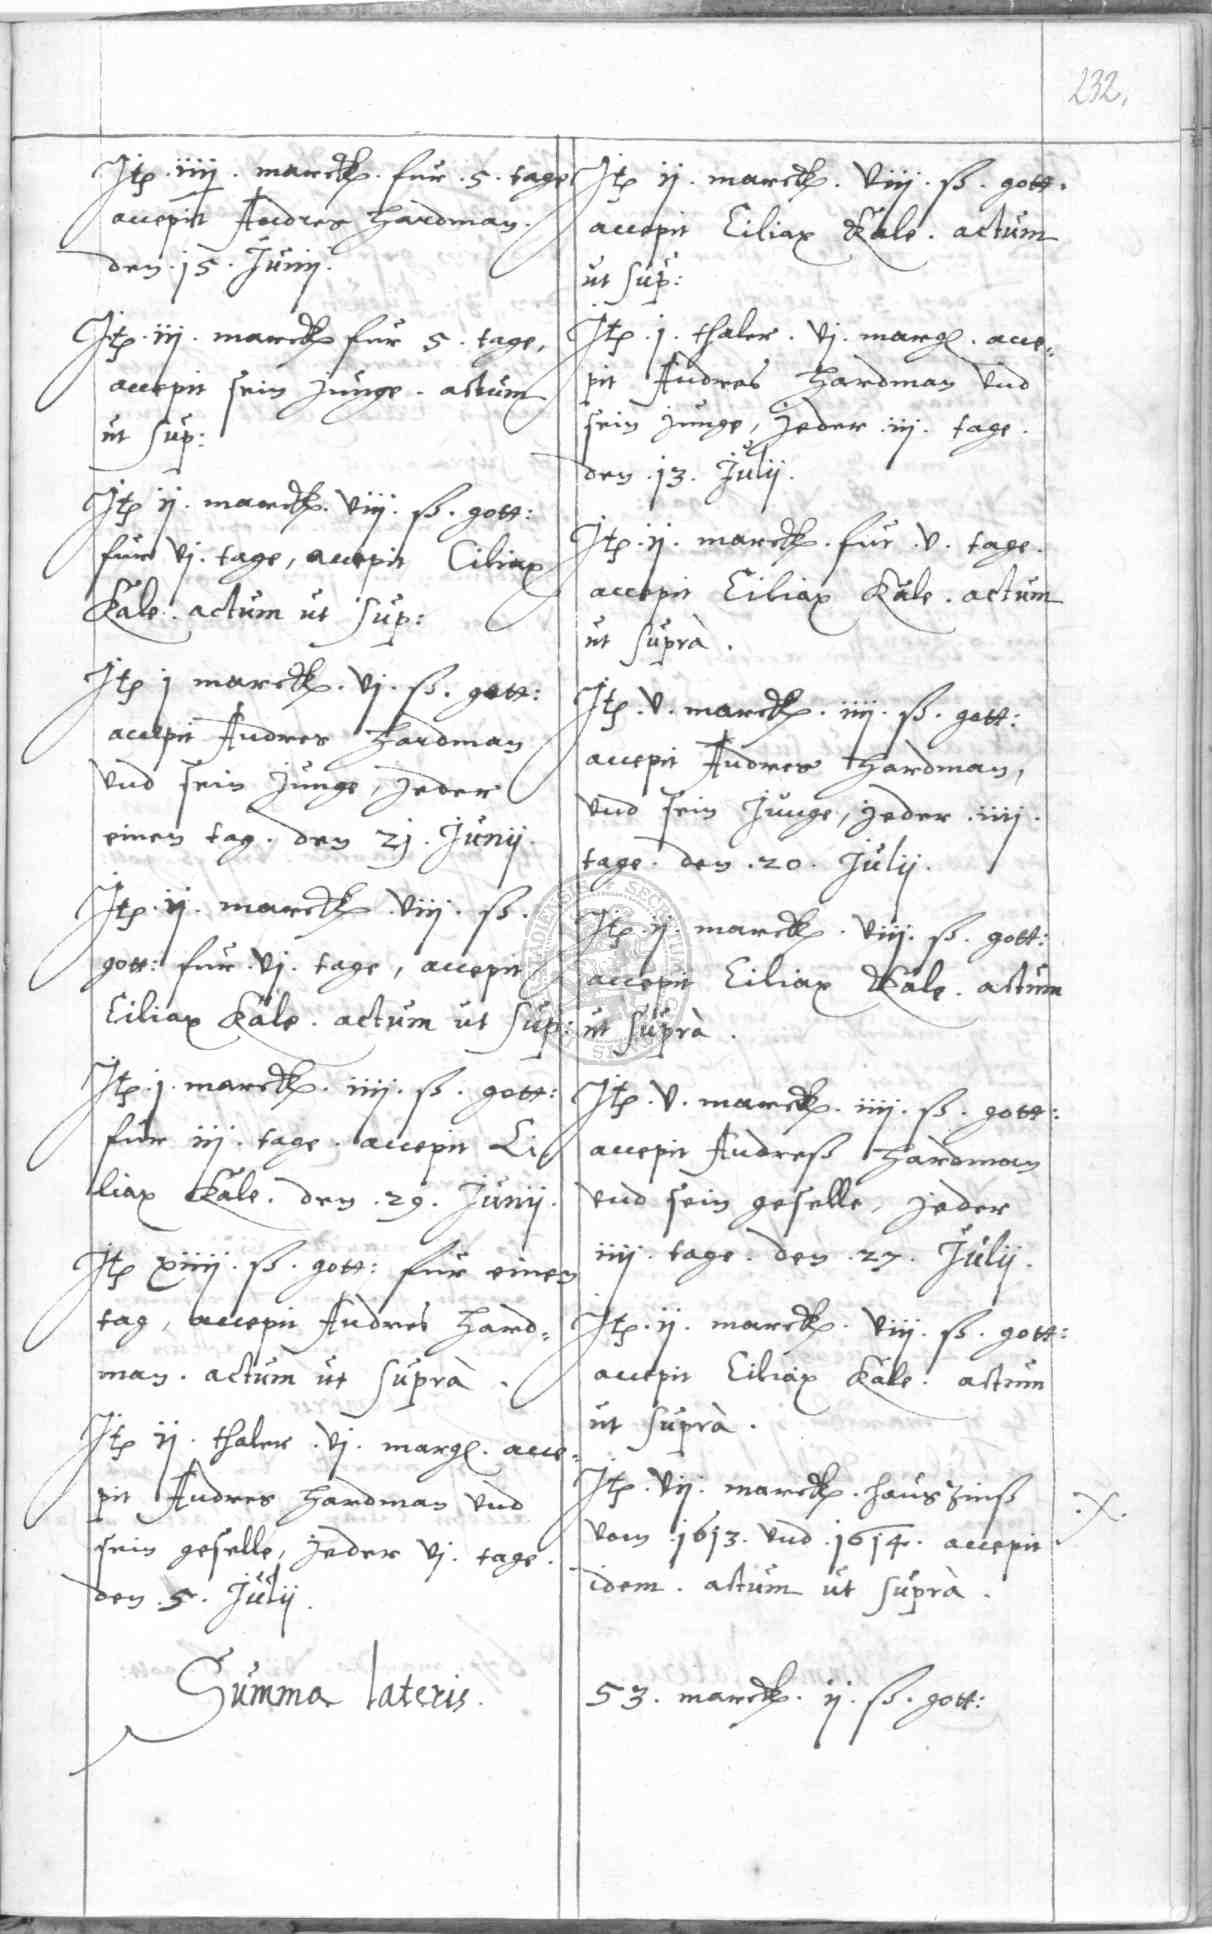 232.
Itē. iiij. marck. fur. 5. tage
accepit Andres Hardman.
den. 15. Junij.
Itē. iij. marck fur 5. tage,
accepit sein junge. actum
ut sup:
Itē ij. marck. viij. ß. gott:
fur vj. tage, accepit Ciliax
Kale. actum ut sup:
Itē j marck. vj. ß. gott:
accepit Andres Hardman
vnd sein junge, jeder
einen tag. den 21. Junij.
Itē. ij. marck. viij. ß.
gott: fur. vj. tage, accepit
Ciliax Kale. actum ut sup:
Itē. j. marck. iiij. ß. gott:
fur iij. tage. accepit Ci
liax Kale. den. 29. Junij.
Itē xiiij. ß. gott: fur einen
tag, accepit Andres Hard=
man. actum ut suprà.
Itē ij. thaler. vj. margl. acce=
pit Andres Hardman vnd
sein geselle, jeder vj. tage.
den. 5. Julij.
Summa lateris.
Itē ij. marck. viij. ß. gott.
accepit Ciliax Kale. actum
ut sup:
Itē. j. thaler. vj. margl. acce=
pit Andres Hardman vnd
sein junge, jeder. iij. tage.
den. 13. Julij.
Itē. ij. marck. fur. v. tage.
accepit Ciliax Kale. actum
ut suprà.
Itē. v. marck. iiij. ß. gott:
accepit Andres Hardman,
vnd sein Junge, jeder. iiij.
tage. den. 20. Julij.
Itē. ij. marck. viij. ß. gott:
accepit Ciliax Kale. actum
ut suprà.
Itē. v. marck. iiij. ß. gott:
accepit Andreß Hardman
vnd sein geselle, jeder
iiij. tage. den. 27. Julij.
Itē. ij. marck. viij. ß. gott:
accepit Ciliax Kale. actum
ut suprà.
Itē. vij. marck. hauszinß
vom. 1613. vnd. 1614. accepit
idem. actum ut suprà.
53. marck. ij. ß. gott: